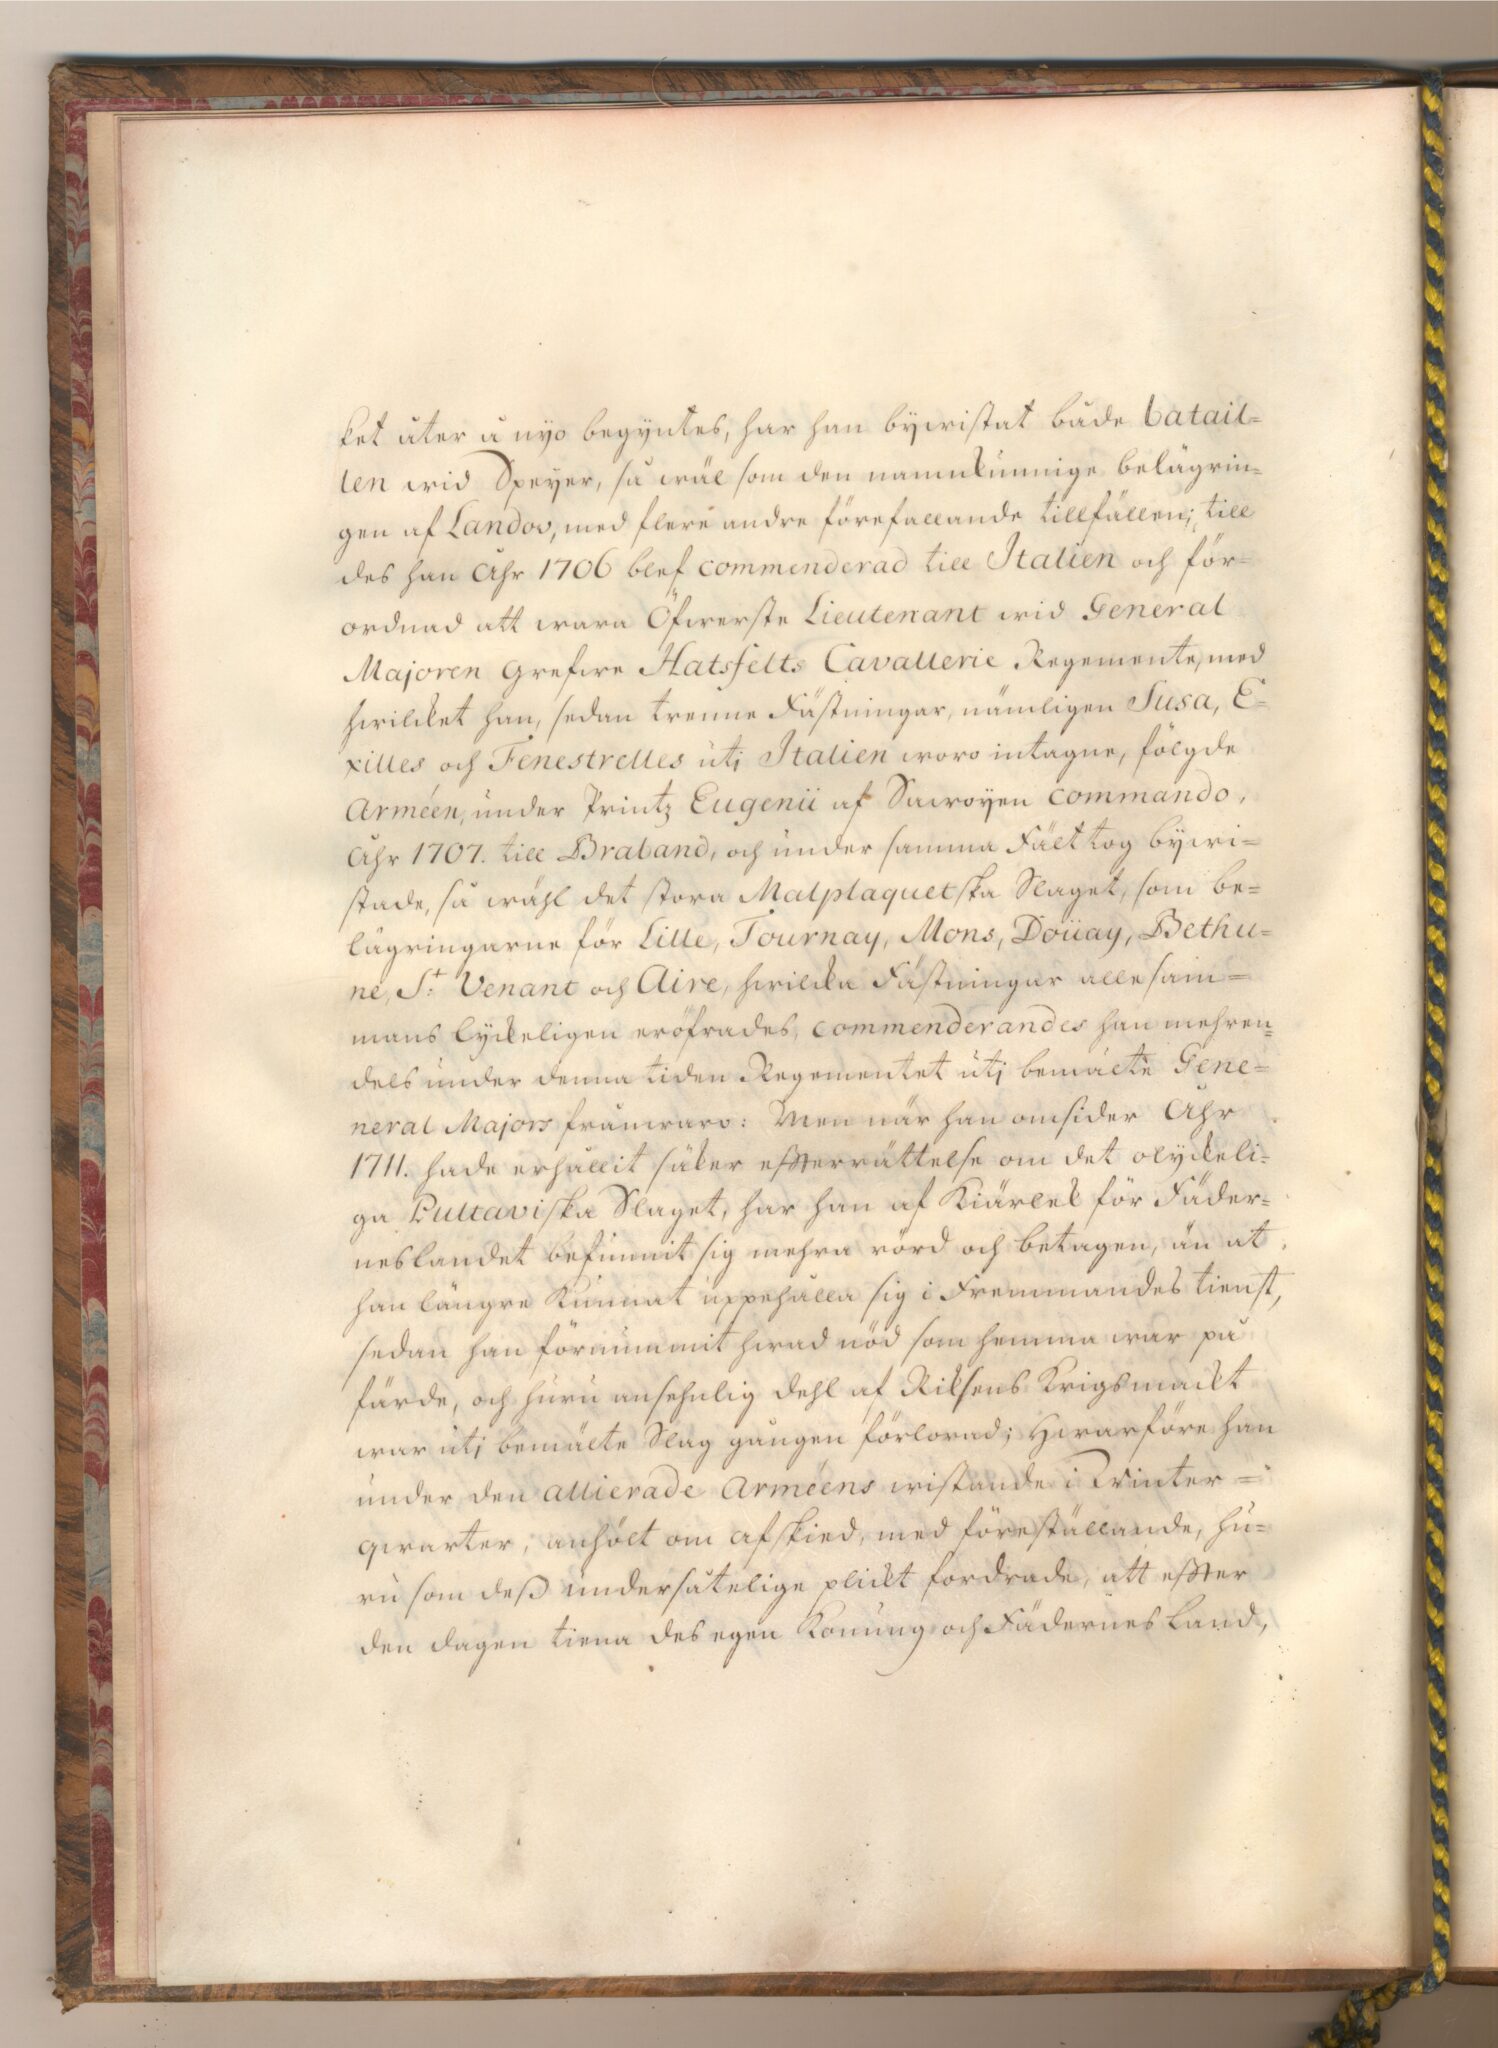 ket åter å nyo begyntes, har han bywistat både batail=
len wid Speyer, så wäl som den namnkunnige belägrin=
gen af Landov, med flere andre förefallande tillfällen; till
des han Åhr 1706 blef commenderad till Italien och för=
ordnad att wara Öfwerste Lieutenant wid General
Majoren Grefwe Hatsfelts Cavallerie Regemente, med
hwilcket han, sedan trenne Fästningar, nämligen Susa, E=
xilles och Fenestrelles utj Italien woro intagne, följde
Arméen, under Printz Eugenii af Sawoyen commando,
Åhr 1707. till Braband, och under samma Fält tog bywi=
stade, så wähl det stora Malplaquetska Slaget, som be=
lägringarne för Lille, Tournay, Mons, Doüay, Bethu=
ne, St. Venant och Aire, hwilcka Fästningar allesam=
mans lyckeligen eröfrades, commenderandes han mehren=
dels under denna tiden Regementet utj bemälte Gene=
neral Majors frånwaro: Men när han omsider Åhr
1711. hade erhållit säker efterrättelse om det olyckeli=
ga Pultaviska Slaget, har han af Kiärlek för Fäder=
neslandet befunnit sig mehra rörd och betagen, än at
han längre kunnat uppehålla sig i Fremmandes tienst,
sedan han förnummit hwad nöd som hemma war på
färde, och huru ansehnlig dehl af Riksens Krigsmackt
war utj bemälte Slag gången förlorad; Hwarföre han
under den allierade Arméens wistande i Winter=
qwarter, anhölt om afskied, med föreställande, hu=
ru som deß undersåtelige plickt fordrade, att efter
den dagen tiena des egen Konung och Fädernesland,